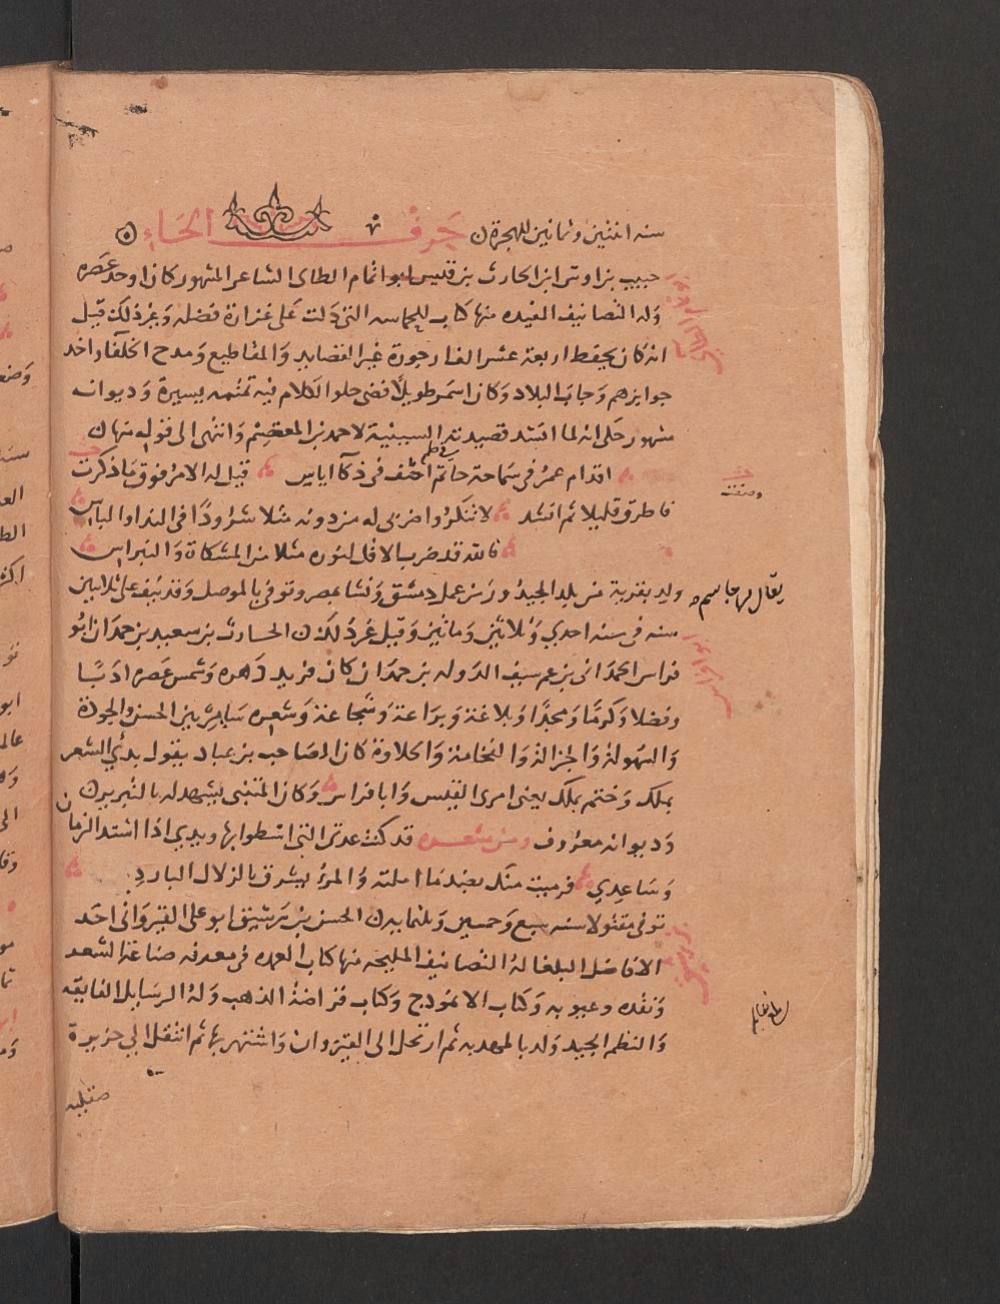 سنه اثنتين وثمانين للهجرة ن حرف الحاء ن
حبيب بن اوس ابن الحارث بن قليس ابو اتمام الطاى الشاعر المشهور كان اوحد عصره
وله التصانيف المفيده منها كتاب الحماسه التى دلت على غزارة فضله وغير ذلك قيل
انه كان يحفظ اربعة عشر الف ارجوزة غير القصايد والمقاطيع ومدح الخلفا واخد
جوايزهم وجاب البلاد وكان اسمر طويلا فصى حلو الكلام فيه تمتمه يسيرة وديوانه
مشهور حكى انه لما انشد قصيدته السينية لاحمد بن المعتصم وانتهى الى قوله منها ن
اقدام عمر فى سماحة حاتم فى حلم احنف فى ذكا اياس قيل له الامر فوق ما ذكرت
وصفت
فاطرق قليلا ثم انشد لا تنكروا ضربى له من دونه مثلا شرودا فى الندا والباس
فالله قد ضرب الاقل لنوره مثلا من المشكاة والنبراس
يقال لها جاسم
ولد بقرية من بلد الجيدور من عمل دمشق ونشا بمصر وتوفى بالموصل وقد نيف على ثلاثين
سنه فى سنه احدي وثلاثين ومائين وقيل غر ذلك ن الحارث بن سعيد بن حمدان ابو
فراس الحمدانى بن عم سيف الدوله بن حمدان كان فريد دهره وشمس عصره ادبا
وفضلا وكرما ومجدا وبلاغة وبراعة وشجاعة وشعره ساير بين الحسن والجودة
والسهولة والجزالة والفخامة والحلاوة كان الصاحب بن عباد يقول بدئ الشعر
بملك وختم بملك يعنى امرى القيس وابا فراس وكان المتنبى يشهد له بالتبريز ن
وديوانه معروف ومن شعره قد كنت عدتى التى اسطوا بها ويدي اذا اشتد الزمان
وساعدي فرميت منك بضد ما املته والمرؤ يشرق بالزلال البارد
توفى مقتولا سنه سبع وخمسين وثلثمايه ن الحسن بن رشيق ابو على القيروانى احد
الافاضل البلغا له التصانيف المليحه منها كتاب العمده فى معرفه صناعة الشعر
ونقده وعيوبه وكتاب الانموذج وكتاب قراضة الذهب وله الرسايل الفايقه
والنظم الجيد ولد بالمهديه ثم ارتحل الى القيروان واشتهر بها ثم انتقل الى جزيرة
صقليه